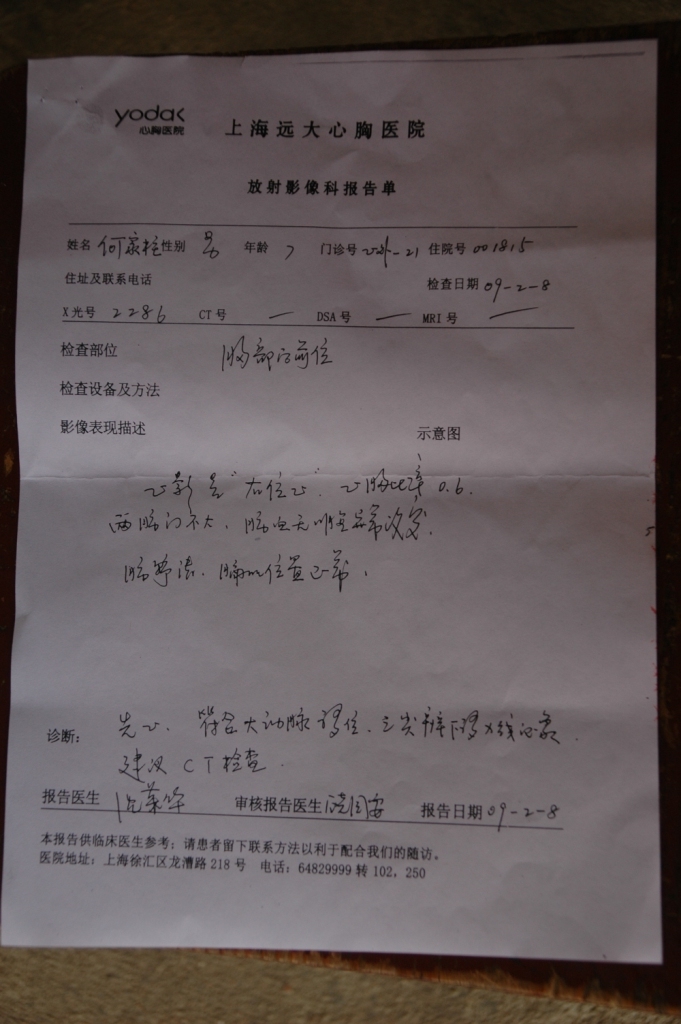 yodak
心胸医院
上海远大心胸医院
放射影像科报告单
姓名 何家 性别 男 年龄 7 门诊号 -21 住院号 001815
住址及联系电话 检查日期 09-2-8
X光号 2286 CT号 — DSA号 — MRI号 —
检查部位 胸部 前位
检查设备及方法
影像表现描述 示意图
心影呈"右位心". 心胸比率 0.6.
两肺门不大, 肺 无 异常
肺 清. 位置正常.
诊断: 先心. 符合大动脉 位. 三尖瓣下 X线
建议 CT检查.
报告医生 审核报告医生 报告日期 09-2-8
本报告供临床医生参考；请患者留下联系方法以利于配合我们的随访。
医院地址：上海徐汇区龙漕路218号 电话：64829999转102，250